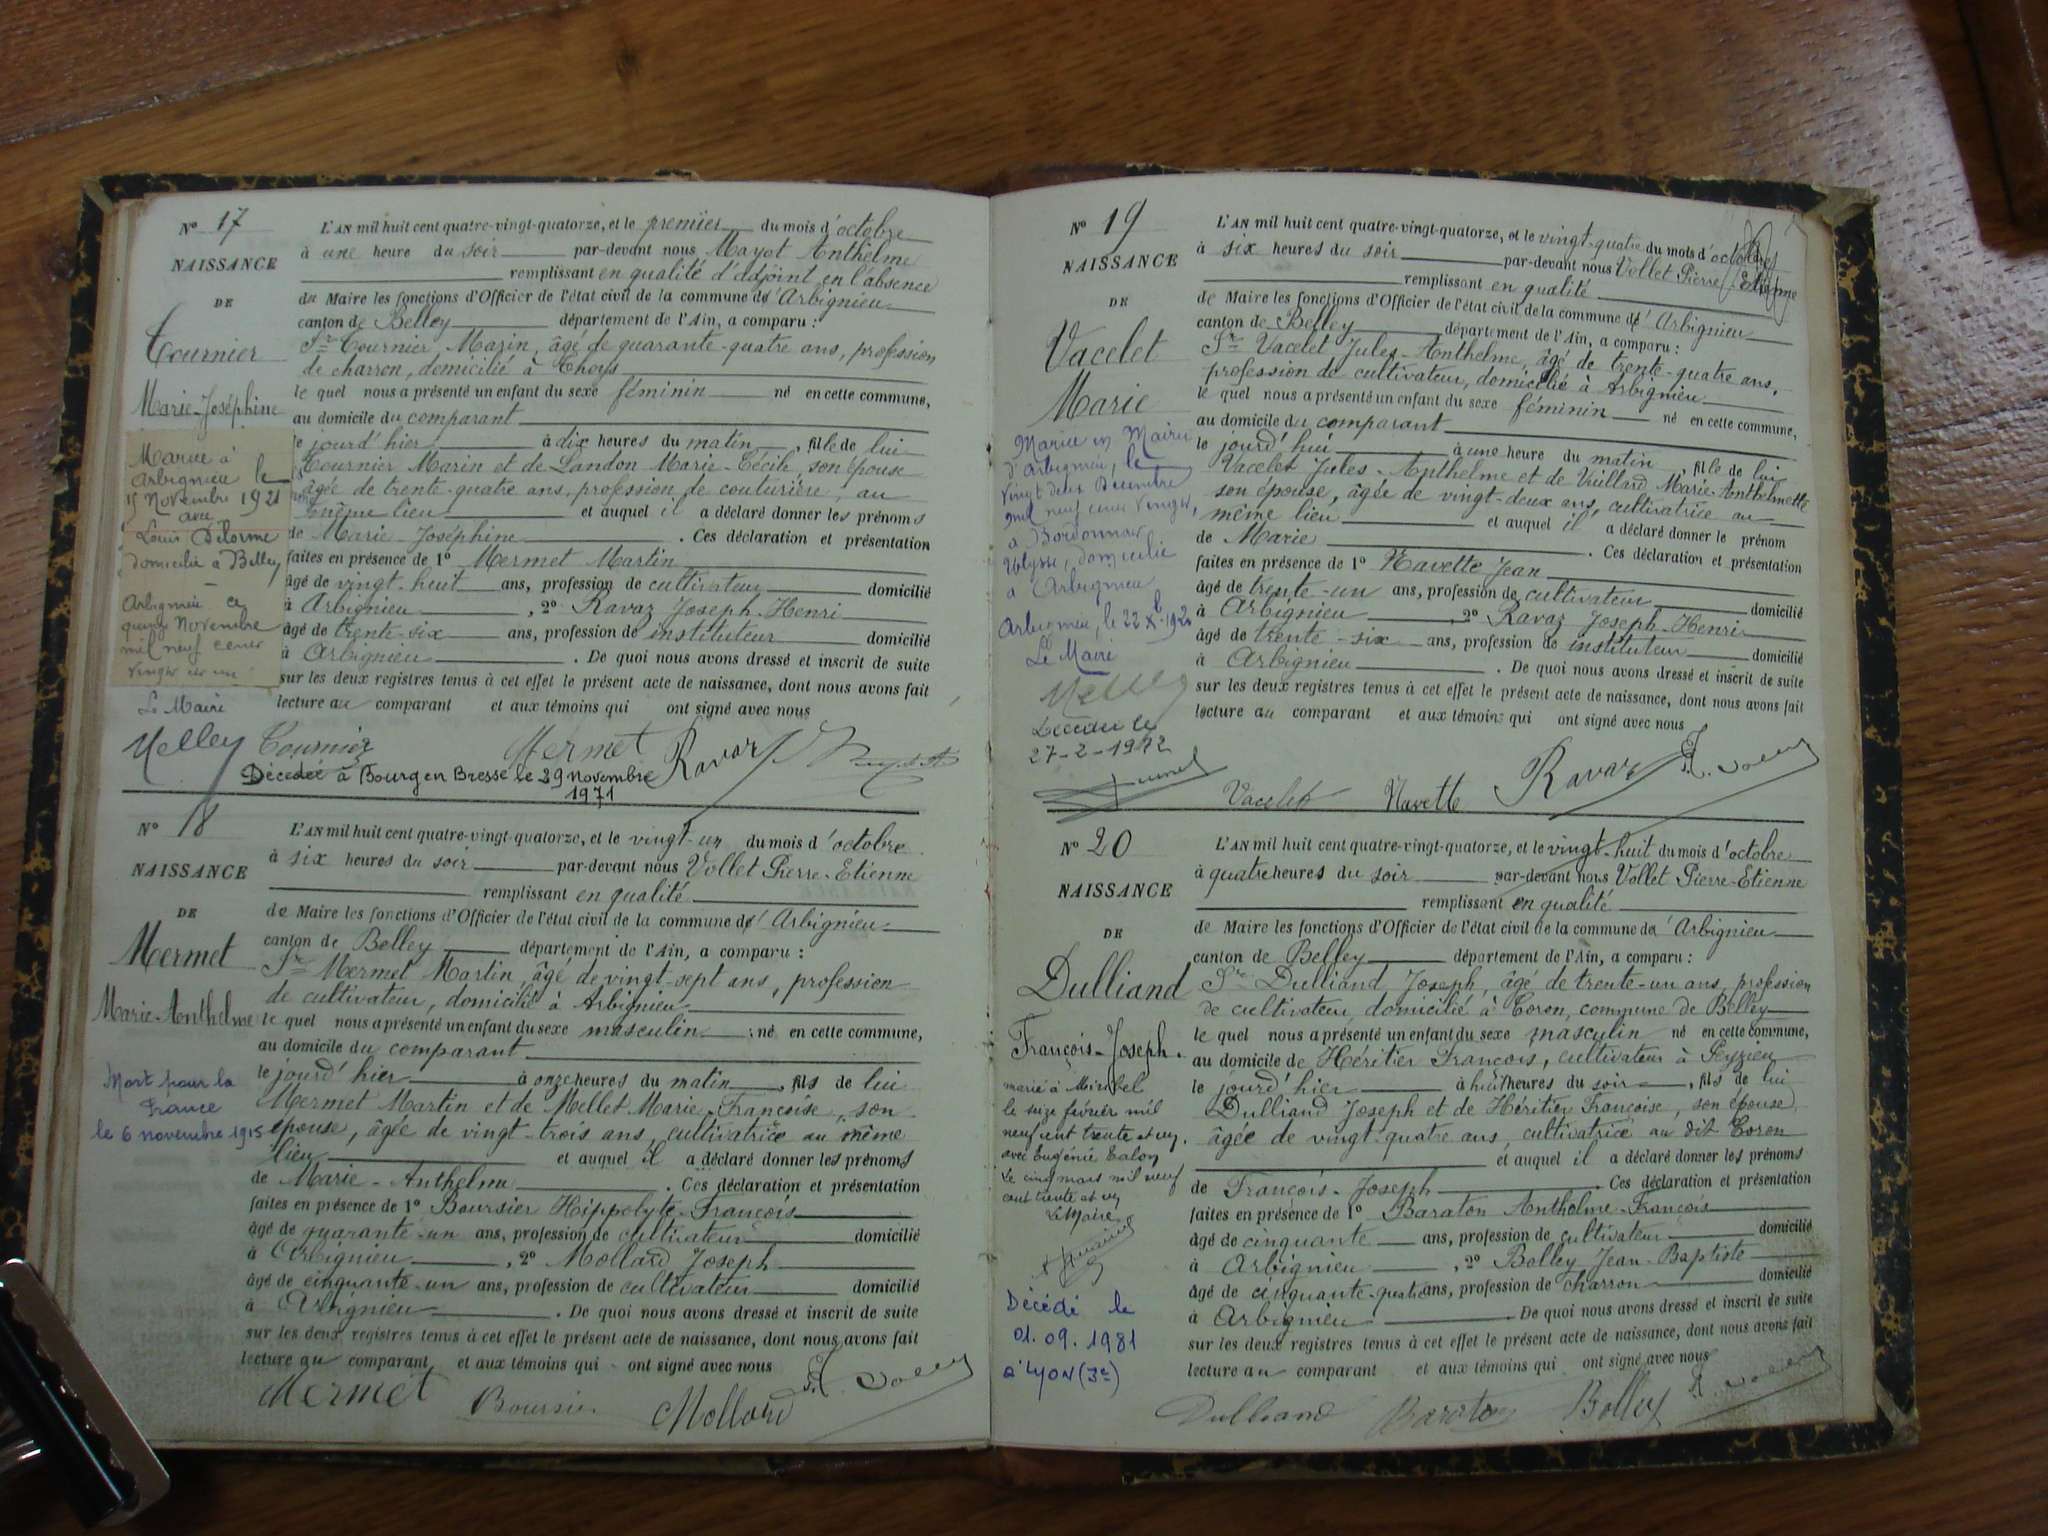 N° 17
L'AN mil huit cent quatre-vingt-quatorze, et le premier du mois d'octobre
à une heure du soir par-devant nous Mayot Anthelme
NAISSANCE
remplissant en qualité d'adjoint en l'absence
DE
du Maire les fonctions d'Officier de l'état civil de la commune d'Arbignieu
canton de Belley département de l'Ain, a comparu :
Tournier
Sr Tournier, Marin, âgé de quarante-quatre ans, profession
de charron, domicilié à Thoys
Marie-Joséphine
le quel nous a présenté un enfant du sexe féminin né en cette commune,
au domicile du comparant
le jourd'hier à dix heures du matin, fille de lui
Tournier Marin et de Landon Marie-Cécile, son épouse
âgée de trente-quatre ans, profession de couturière, au
même lieu et auquel il a déclaré donner les prénoms
de Marie-Joséphine. Ces déclaration et présentation
faites en présence de 1° Mermet Martin
âgé de vingt-huit ans, profession de cultivateur domicilié
à Arbignieu, 2° Ravaz Joseph-Henri
âgé de trente-six ans, profession de instituteur domicilié
à Arbignieu. De quoi nous avons dressé et inscrit de suite
sur les deux registres tenus à cet effet le présent acte de naissance, dont nous avons fait
lecture au comparant et aux témoins qui ont signé avec nous
Mariée à
Arbignieu le
15 Novembre 1921
avec
Louis Delorme
domicilié à Belley
Arbignieu ce
quinze Novembre
mil neuf cent
vingt et un
Le Maire
Melley Tournier Mermet Ravaz
Décédée à Bourg en Bresse le 29 novembre
1971
N° 18
L'AN mil huit cent quatre-vingt-quatorze, et le vingt-un du mois d'octobre
à six heures du soir par-devant nous Vollet Pierre-Etienne
NAISSANCE
remplissant en qualité
DE
de Maire les fonctions d'Officier de l'état civil de la commune d'Arbignieu
canton de Belley département de l'Ain, a comparu :
Mermet
Sr Mermet Martin, âgé de vingt-sept ans, profession
de cultivateur, domicilié à Arbignieu
Marie-Anthelme
le quel nous a présenté un enfant du sexe masculin né en cette commune,
au domicile du comparant
le jourd'hier à onze heures du matin, fils de lui
Mermet Martin et de Mellet Marie-Françoise, son
épouse, âgée de vingt-trois ans, cultivatrice au même
lieu et auquel il a déclaré donner les prénoms
de Marie-Anthelme. Ces déclaration et présentation
faites en présence de 1° Boursier Hippolyte-François
âgé de quarante-un ans, profession de cultivateur domicilié
à Arbignieu, 2° Mollard Joseph
âgé de cinquante-un ans, profession de cultivateur domicilié
à Arbignieu. De quoi nous avons dressé et inscrit de suite
sur les deux registres tenus à cet effet le présent acte de naissance, dont nous avons fait
lecture au comparant et aux témoins qui ont signé avec nous
Mort pour la
France
le 6 novembre 1915
Mermet Boursier Mollard P. E. Vollet
N° 19
L'AN mil huit cent quatre-vingt-quatorze, et le vingt-quatre du mois d'octobre
à six heures du soir par-devant nous Vollet Pierre-Etienne
NAISSANCE
remplissant en qualité
DE
de Maire les fonctions d'Officier de l'état civil de la commune d'Arbignieu
canton de Belley département de l'Ain, a comparu :
Vacelet
Sr Vacelet Jules-Anthelme, âgé de trente-quatre ans,
profession de cultivateur, domicilié à Arbignieu
Marie
le quel nous a présenté un enfant du sexe féminin né en cette commune,
au domicile du comparant
le jourd'hui à une heure du matin, fille de lui
Vacelet Jules-Anthelme et de Vuillard Marie-Anthelmette
son épouse, âgée de vingt-deux ans, cultivatrice au
même lieu et auquel il a déclaré donner le prénom
de Marie. Ces déclaration et présentation
faites en présence de 1° Navette Jean
âgé de trente-un ans, profession de cultivateur domicilié
à Arbignieu, 2° Ravaz Joseph-Henri
âgé de trente-six ans, profession de instituteur domicilié
à Arbignieu. De quoi nous avons dressé et inscrit de suite
sur les deux registres tenus à cet effet le présent acte de naissance, dont nous avons fait
lecture au comparant et aux témoins qui ont signé avec nous
Mariée en Mairie
d'Arbignieu, le
vingt deux Décembre
mil neuf cent vingt,
à Bordonnat
Ulysse, domicilié
à Arbignieu
Arbignieu, le 22 Xb 1920
Le Maire
Melley
Décédée le
27-2-1972
Vacelet Navette Ravaz P. E. Vollet
N° 20
L'AN mil huit cent quatre-vingt-quatorze, et le vingt-huit du mois d'octobre
à quatre heures du soir par-devant nous Vollet Pierre-Etienne
NAISSANCE
remplissant en qualité
DE
de Maire les fonctions d'Officier de l'état civil de la commune d'Arbignieu
canton de Belley département de l'Ain, a comparu :
Dulliand
Sr Dulliand, Joseph, âgé de trente-un ans, profession
de cultivateur, domicilié à Coron, commune de Belley
François-Joseph.
le quel nous a présenté un enfant du sexe masculin né en cette commune,
au domicile de Héritier François, cultivateur à Peyzieu
le jourd'hier à huit heures du soir, fils de lui
Dulliand Joseph et de Héritier Françoise, son épouse,
âgée de vingt-quatre ans, cultivatrice au dit Coron
et auquel il a déclaré donner les prénoms
de François-Joseph. Ces déclaration et présentation
faites en présence de 1° Baraton Anthelme-François
âgé de cinquante ans, profession de cultivateur domicilié
à Arbignieu, 2° Bolley Jean-Baptiste
âgé de cinquante-quatre ans, profession de charron domicilié
à Arbignieu. De quoi nous avons dressé et inscrit de suite
sur les deux registres tenus à cet effet le présent acte de naissance, dont nous avons fait
lecture au comparant et aux témoins qui ont signé avec nous
marié à Miribel
le seize février mil
neuf cent trente et un.
avec Eugénie Talon
Le cinq mars mil neuf
cent trente et un
Le Maire
Décédé le
01.09.1981
à Lyon (3e)
Dulliand Baraton Bolley P. E. Vollet